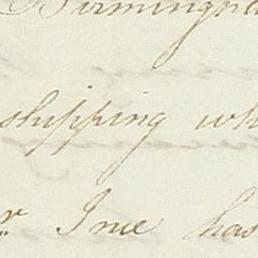 Birmingha
shipping wh
r True has